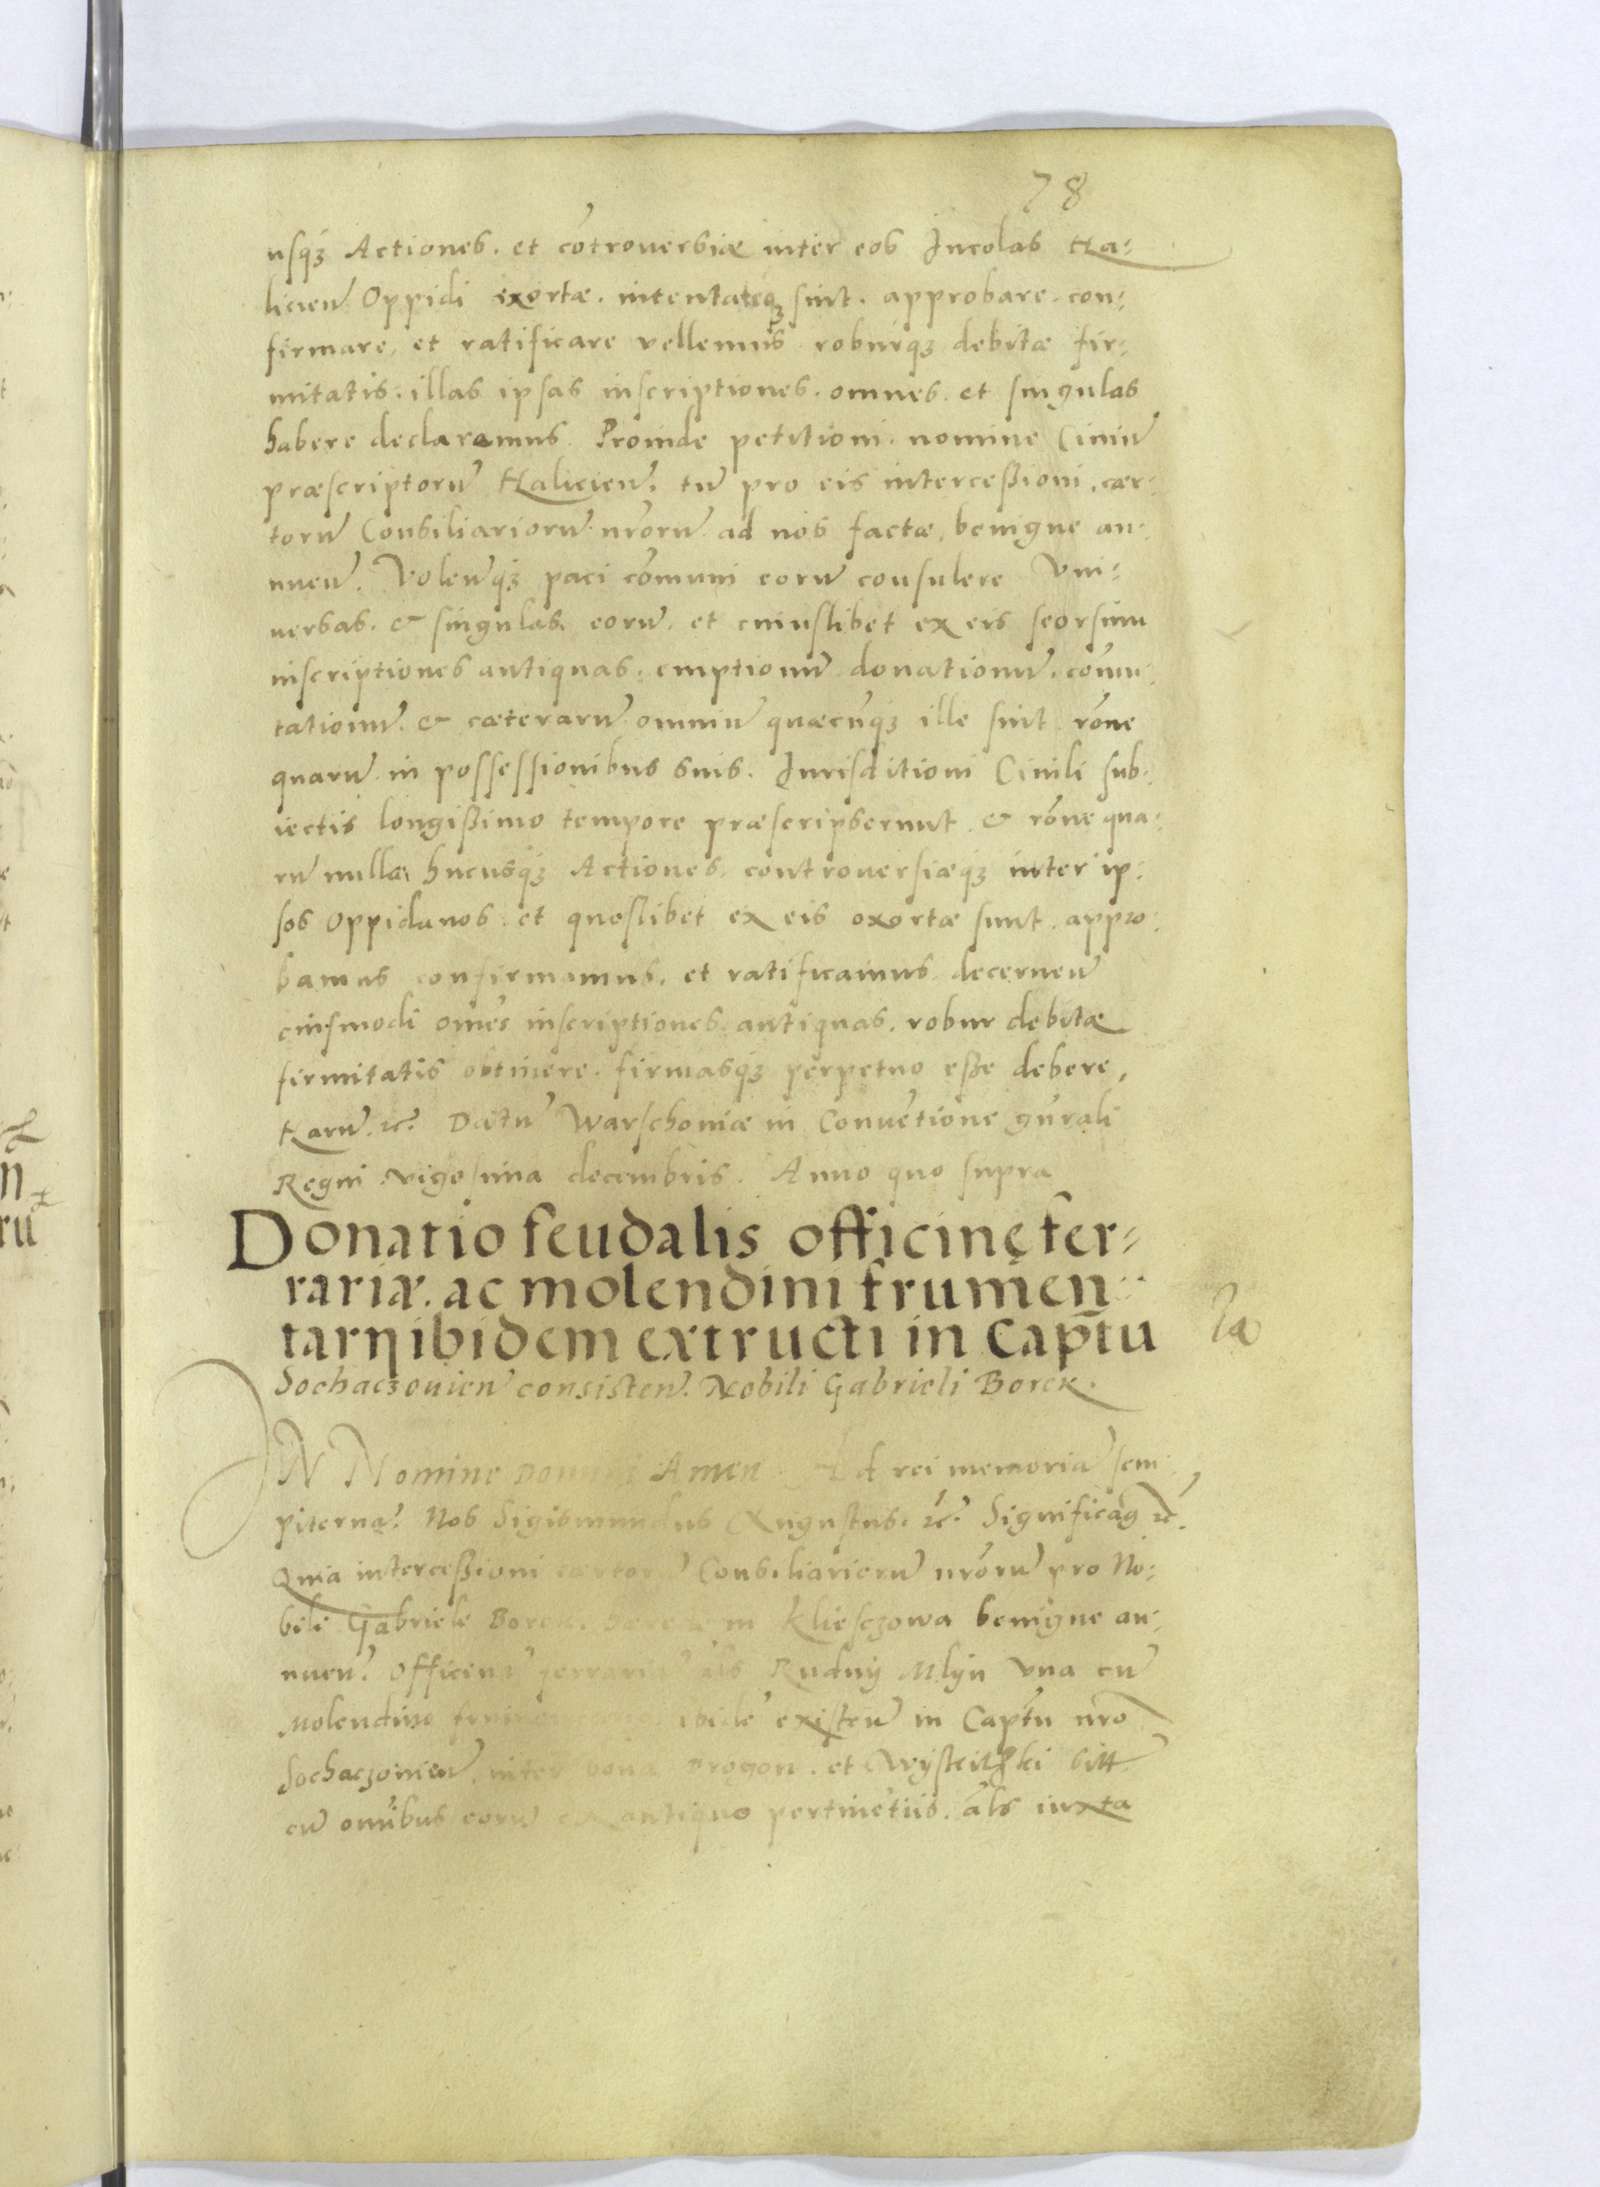 78
usq́ꝫ Actiones. et cōtrouersiæ inter eos Incolas Ha-
licień Oppidi exortæ. intentatæq́ꝫ sint. approbare. con-
firmare, et ratificare vellemus roburq́ꝫ debitæ fir-
mitatis. illas ipsas inscriptiones. omnes. et singulas
habere declaramus. Proinde petitioni. nomine Ciuiū
præscriptorū Halicień. tū pro eis intercessioni, cær-
torū Consiliariorū nr̄orū ad nos factæ, benigne an-
nueń. Voleńq́ꝫ paci cōmuni eorū consulere Vni-
uersas. & singulas. eorū. et cuiuslibet ex eis seorsim
inscriptiones antiquas. emptionū donationū. cōmu-
tationū. & cæterarū omniū quæcūq́ꝫ ille sint rōne
quarū in possessionibus suis. Jurisditioni Ciuili sub-
iectis longissimo tempore præscripserunt & rōne qua-
rū nullæ hucusq́ꝫ Actiones. controuersiæq́ꝫ inter ip-
sos Oppidanos. et quoslibet ex eis oxortæ sunt. appro-
bamus confirmamus. et ratificamus decerneń
eiusmodi om̄es inscriptiones. antiquas. robur debitæ
firmitatis obtinere. firmasq́ꝫ perpetuo esse debere,
Harū. ꝛc̄. Datū Warschouiæ in Conuētione gn̄rali
Regni vigesima decembris. Anno quo supra
Donatio feudalis officinę fer-
rariæ. ac molendini frumen-
tarij ibidem extructi in Cap̄tu
Sochaczouień consisteń. Nobili Gabrieli Borek.
IN Nomine Domini Amen Ad rei memoriā sem
piternā. Nos Sigismundus Augustus. ꝛc̄. Significāꝫ ꝛc̄.
Quia intercessioni cærtorū Consiliariorū nr̄orū pro No-
bili Gabriele Borek. in Kliesczowa benigne an-
nueń. Officinā ferrariā als Rudnij Mlijn vna cū
Molendino ibidē existeń in Cap̄tu nr̄o
Sochaczouień, inter bona Drogon. et
cū om̄ibus eorū ex antiquo pertinētiis. als iuxta